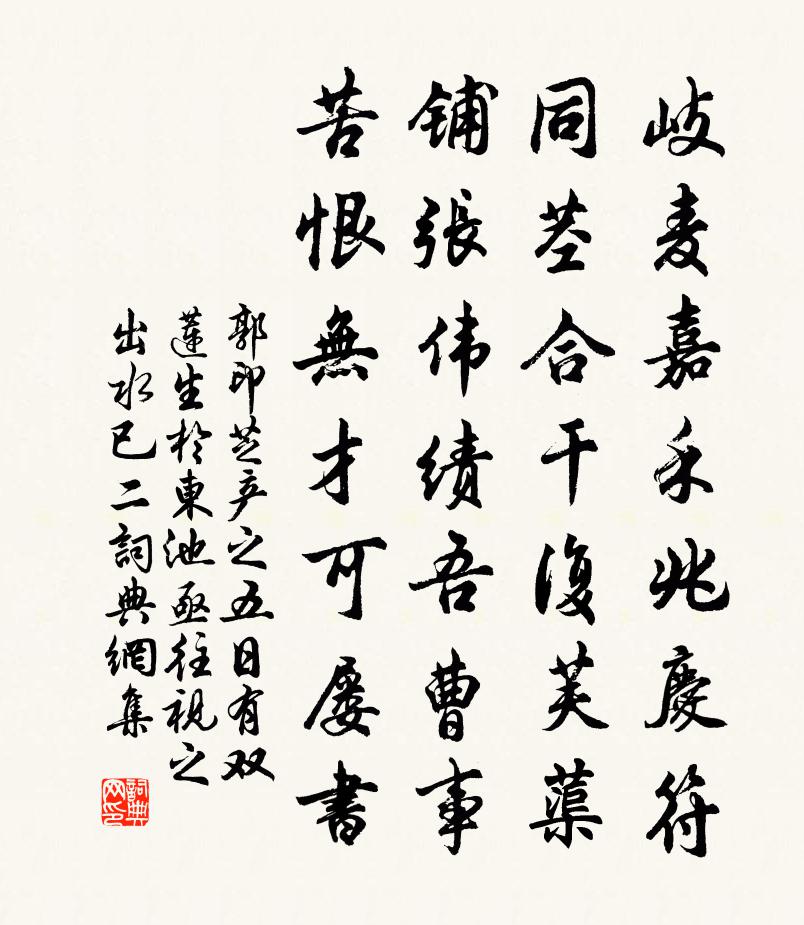 岐麦嘉禾兆慶符
同茎合干復芙蕖
铺張伟績吾曹事
苦恨無才可屡書
郭印芝产之五日有双
蓮生於東池亟往視之
出水已二詞典網集
詞典网印